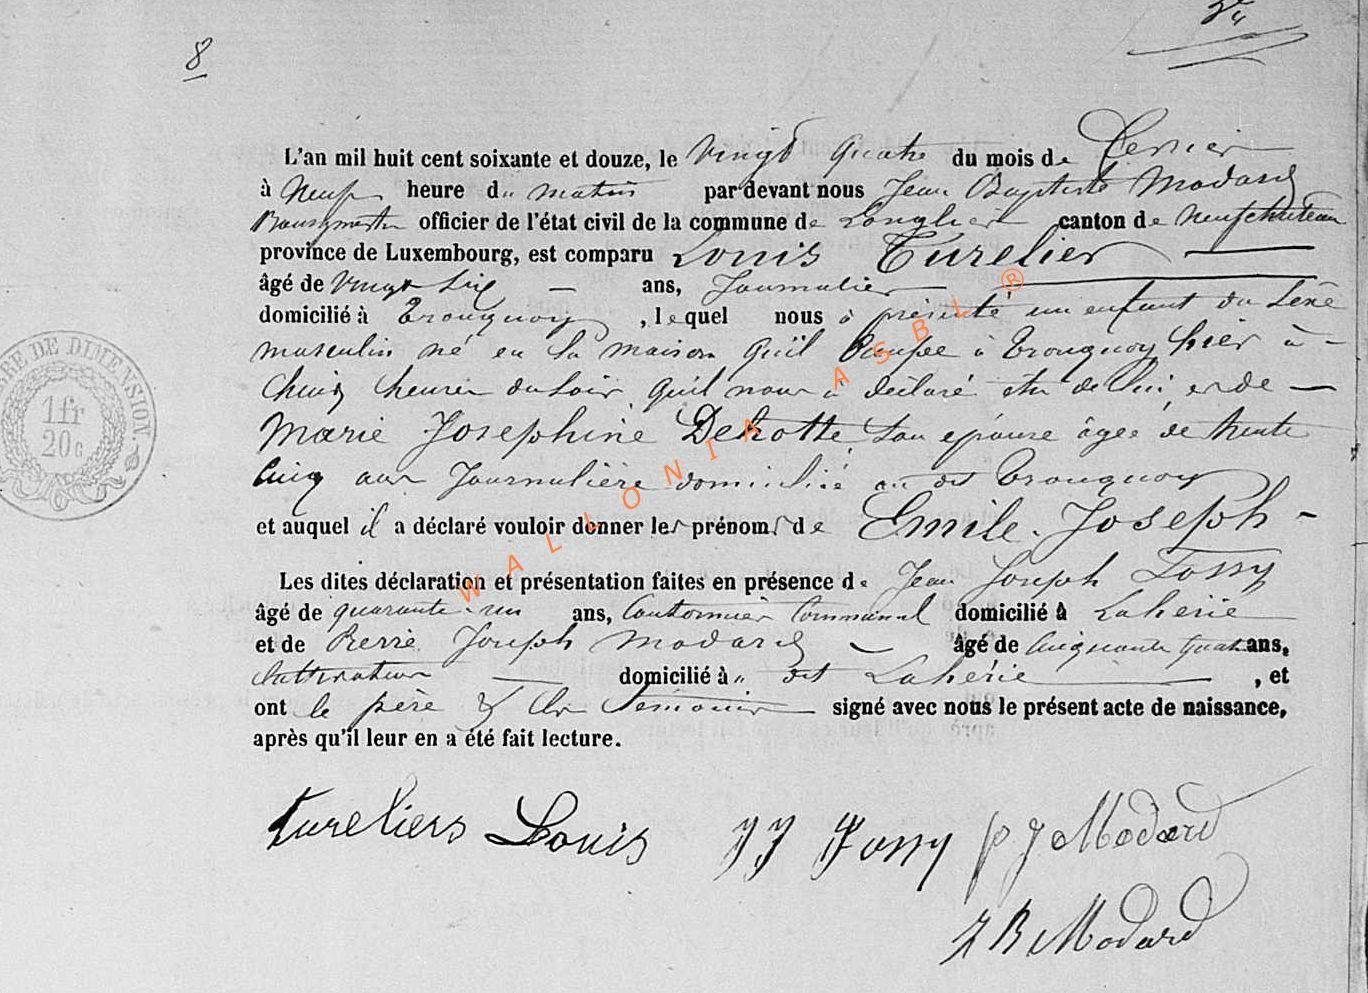 8
L'an mil huit cent soixante et douze, le vingt quatre du mois de
à Neuf heure du matin par devant nous Jean Baptiste Modard
Bourgmestre officier de l'état civil de la commune de Longlier canton de Neufchateau
province de Luxembourg, est comparu Louis Turelier
âgé de vingt six ans, Journalier
domicilié à Tronquoy, lequel nous à présenté un enfant du sexe
masculin né en la maison qu'il à Tronquoy hier à
heures du soir qu'il nous à déclaré être de lui, et de
Marie Josephine Dehotte son épouse âgée de trente
cinq ans Journalière domiciliée au dit Tronquoy
et auquel il a déclaré vouloir donner les prénoms de Emile. Joseph
Les dites déclaration et présentation faites en présence de Jean Joseph Jossy
âgé de quarante un ans, Cantonnier Communal domicilié à Laherie
et de Pierre Joseph Modard âgé de cinquante quatre ans,
cultivateur domicilié à dit Laherie, et
ont le père & les témoins signé avec nous le présent acte de naissance,
après qu'il leur en a été fait lecture.
Tureliers Louis JJ Jossy p J Modard
J B Modard
BRE DE DIMENSION.
1fr
20c
WALLONIA ASBL ®